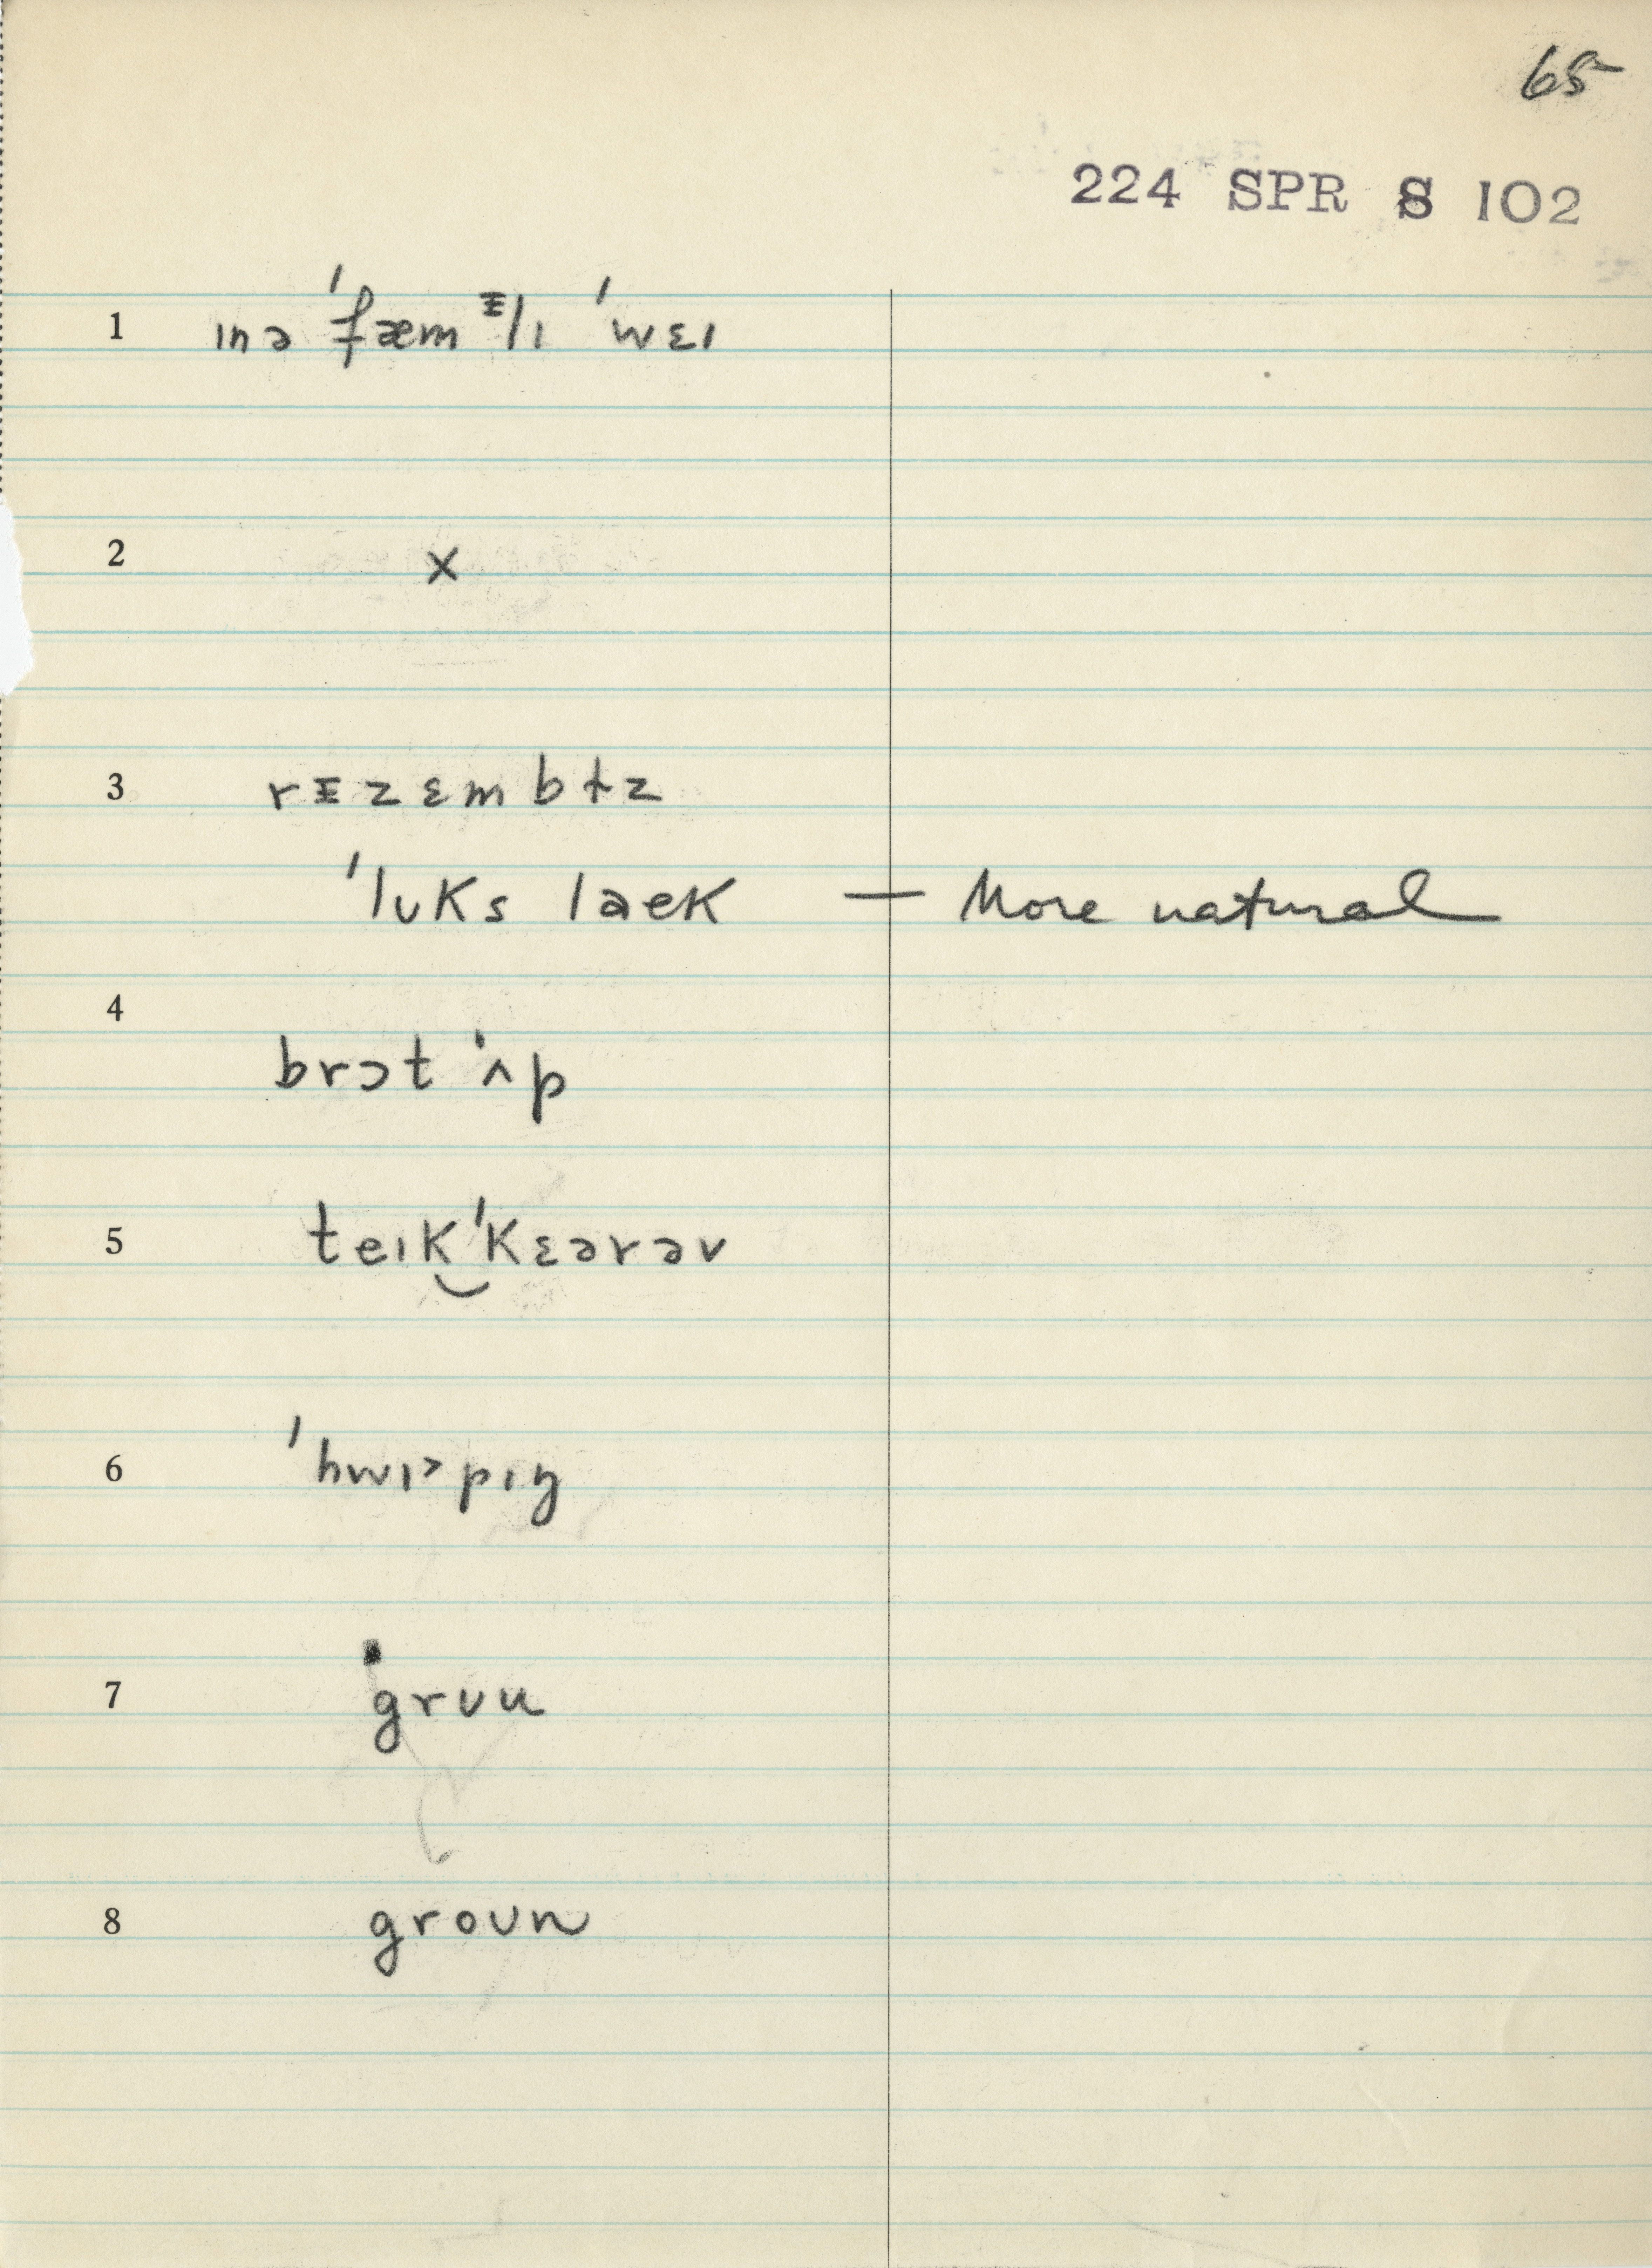 65
224 SPR S 102
1 ɪnə ˈfæmᵻlɪ ˈwɛɪ
2 x
3 rᵻzɛmbɫz
ˈlʊks laek — More natural
4
brɔt ˈʌp
5 teɪk‿ˈkɛərəv
6 ˈhwɪ˃pɪŋ
7 grʊu
8 groʊn